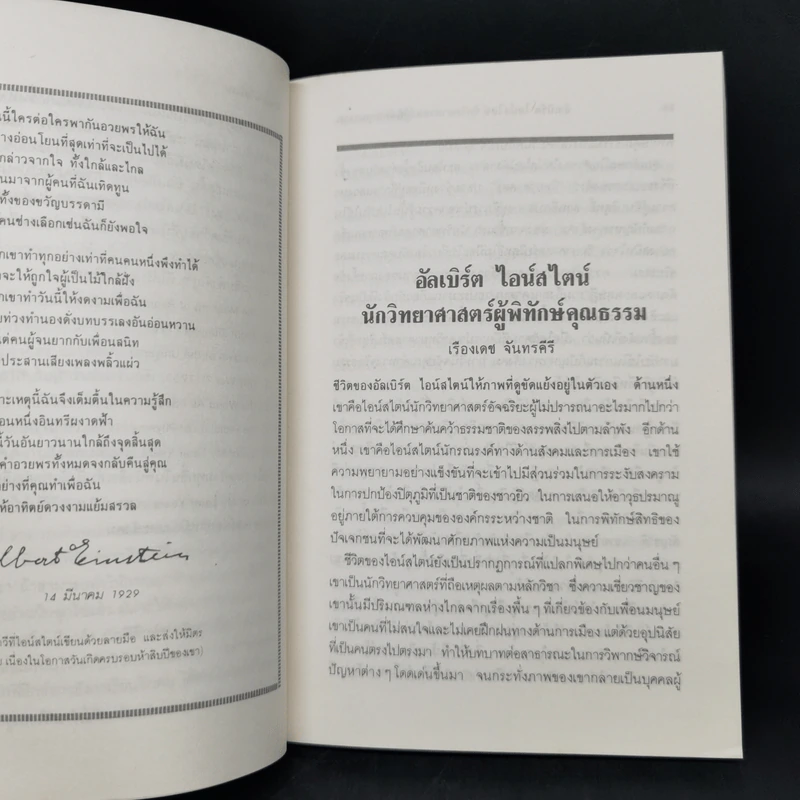 นี้ใครต่อใครพากันอวยพรให้ฉัน
างอ่อนโยนที่สุดเท่าที่จะเป็นไปได้
กล่าวจากใจ ทั้งใกล้และไกล
นมาจากผู้คนที่ฉันเทิดทูน
ทั้งของขวัญบรรดามี
คนช่างเลือกเช่นฉันก็ยังพอใจ
กเขาทำทุกอย่างเท่าที่คนคนหนึ่งพึงทำได้
จะให้ถูกใจผู้เป็นไม้ใกล้ฝั่ง
กเขาทำวันนี้ให้งดงามเพื่อฉัน
บท่วงทำนองดั่งบทบรรเลงอันอ่อนหวาน
ต่คนผู้จนยากก็เพื่อสนิท
ประสานเสียงเพลงพลิ้วแผ่ว
าะเหตุนี้ฉันจึงเต็มตื้นในความรู้สึก
อนหนึ่งอินทรีผงาดฟ้า
นี้วันอันยาวนานใกล้ถึงจุดสิ้นสุด
คำอวยพรทั้งหมดจงกลับคืนสู่คุณ
อย่างที่คุณทำเพื่อฉัน
ห้อาทิตย์ดวงงามแย้มสรวล
lbert Einstein
14 มีนาคม 1929
วีที่ไอน์สไตน์เขียนด้วยลายมือ และส่งให้มิตร
เนื่องในโอกาสวันเกิดครบรอบห้าสิบปีของเขา)
อัลเบิร์ต ไอน์สไตน์
นักวิทยาศาสตร์ผู้พิทักษ์คุณธรรม
เรืองเดช จันทรคีรี
ชีวิตของอัลเบิร์ต ไอน์สไตน์ให้ภาพที่ดูขัดแย้งอยู่ในตัวเอง ด้านหนึ่ง
เขาคือไอน์สไตน์นักวิทยาศาสตร์อัจฉริยะผู้ไม่ปรารถนาอะไรมากไปกว่า
โอกาสที่จะได้ศึกษาค้นคว้าธรรมชาติของสรรพสิ่งไปตามลำพัง อีกด้าน
หนึ่ง เขาคือไอน์สไตน์นักรณรงค์ทางด้านสังคมและการเมือง เขาใช้
ความพยายามอย่างแข็งขันที่จะเข้าไปมีส่วนร่วมในการระงับสงคราม
ในการปกป้องปิตุภูมิที่เป็นชาติของชาวยิว ในการเสนอให้อาวุธปรมาณู
อยู่ภายใต้การควบคุมขององค์กรระหว่างชาติ ในการพิทักษ์สิทธิของ
ปัจเจกชนที่จะได้พัฒนาศักยภาพแห่งความเป็นมนุษย์
ชีวิตของไอน์สไตน์ยังเป็นปรากฏการณ์ที่แปลกพิเศษไปกว่าคนอื่น ๆ
เขาเป็นนักวิทยาศาสตร์ที่ถือเหตุผลตามหลักวิชา ซึ่งความเชี่ยวชาญของ
เขานั้นมีปริมณฑลห่างไกลจากเรื่องพื้น ๆ ที่เกี่ยวข้องกับเพื่อนมนุษย์
เขาเป็นคนที่ไม่สนใจและไม่เคยฝึกฝนทางด้านการเมือง แต่ด้วยอุปนิสัย
ที่เป็นคนตรงไปตรงมา ทำให้บทบาทต่อสาธารณะในการวิพากษ์วิจารณ์
ปัญหาต่าง ๆ โดดเด่นขึ้นมา จนกระทั่งภาพของเขากลายเป็นบุคคลผู้